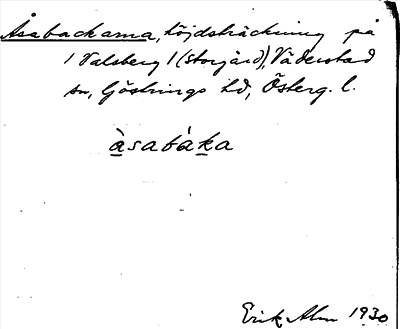 Åsabackarna, höjdsträckning på
1 Valsberg 1 (Storgård), Väderstad
sn, Göstrings hd, Österg. l.
àsabáka
Erik Alm 1930